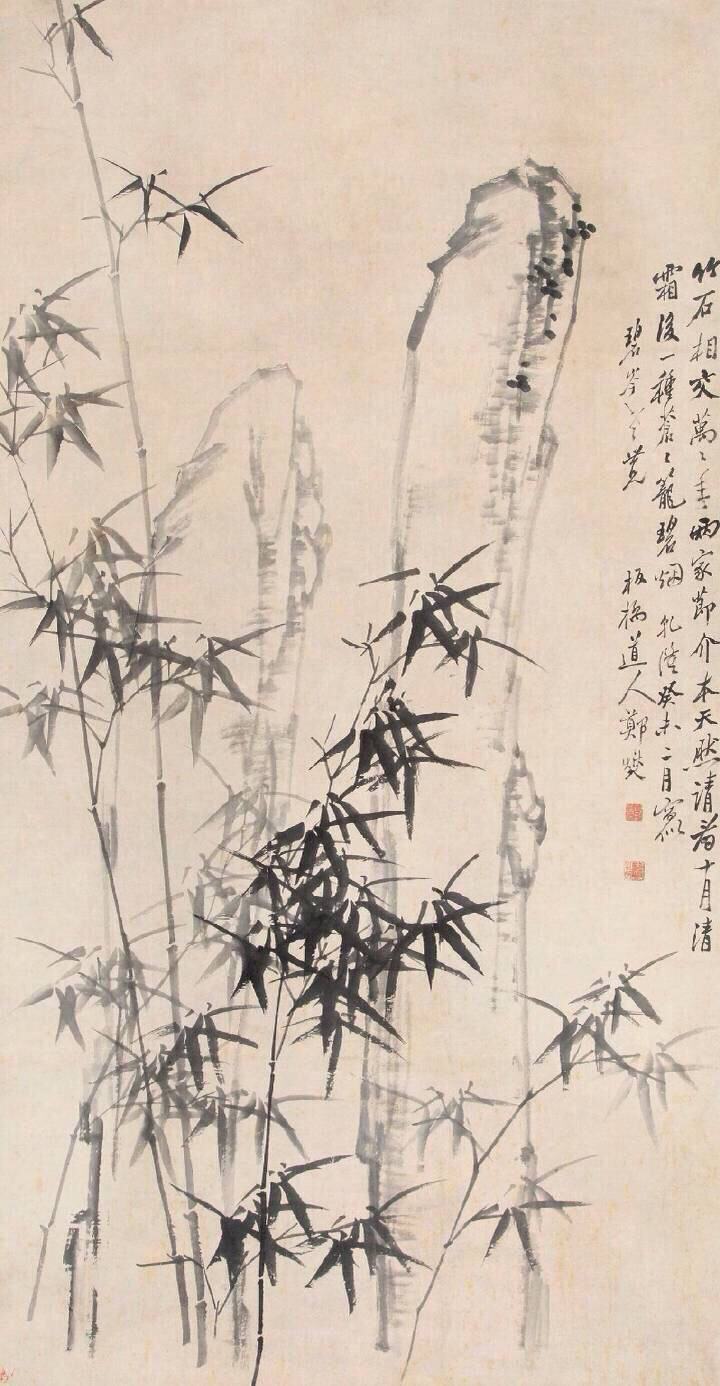 竹石相交萬〻春兩家節介本天然請看十月清
霜後一種蒼〻籠碧烟乾隆癸未二月寫
碧峯 板橋道人鄭燮